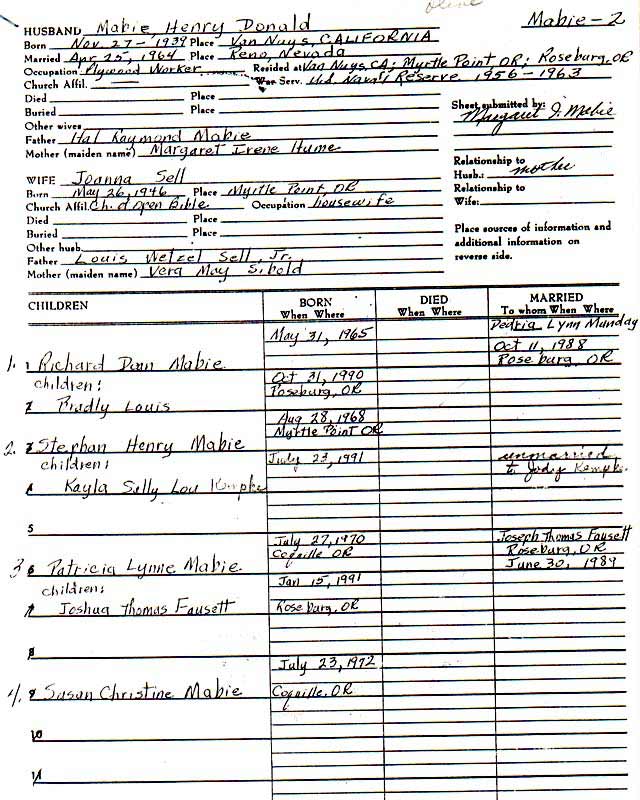 Mabie-2
HUSBAND Mabie, Henry Donald
Born Nov. 27-1939 Place Van Nuys, CALIFORNIA
Married Apr 25, 1964 Place Reno, Nevada
Occupation Plywood Worker Resided at Van Nuys, CA; Myrtle Point, OR; Roseburg, OR
Church Affil. War Serv. U.S. Naval Reserve 1956-1963
Died Place
Buried Place
Sheet submitted by:
Margaret I. Mabie
Other wives
Father Hal Raymond Mabie
Mother (maiden name) Margaret Irene Hume
Relationship to
Husb.: mother
WIFE Joanna Sell
Born May 26, 1946 Place Myrtle Point, OR
Church Affil. Ch. of Open Bible Occupation housewife
Relationship to
Wife:
Died Place
Buried Place
Other husb.
Father Louis Wetzel Sell, Jr.
Mother (maiden name) Vera May Sibold
Place sources of information and
additional information on
reverse side.
CHILDREN BORN DIED MARRIED
When Where When Where To whom When Where
Dedria Lynn Munday
May 31, 1965
Oct 11, 1988
1. 1 Richard Dan Mabie Roseburg, OR
children: Oct 31, 1990
Roseburg, OR
2 Bradly Louis
Aug 28, 1968
Myrtle Point OR
2. 3 Stephan Henry Mabie
children: July 23, 1991 unmarried
to Judy Kempke
4 Kayla Sally Lou Kempke
5
July 27, 1970 Joseph Thomas Fausett
Coquille OR Roseburg, OR
3 6 Patricia Lynne Mabie June 30, 1989
children: Jan 15, 1991
7 Joshua Thomas Fausett Roseburg, OR
8
July 23, 1972
4. 9 Susan Christine Mabie Coquille, OR
10
11